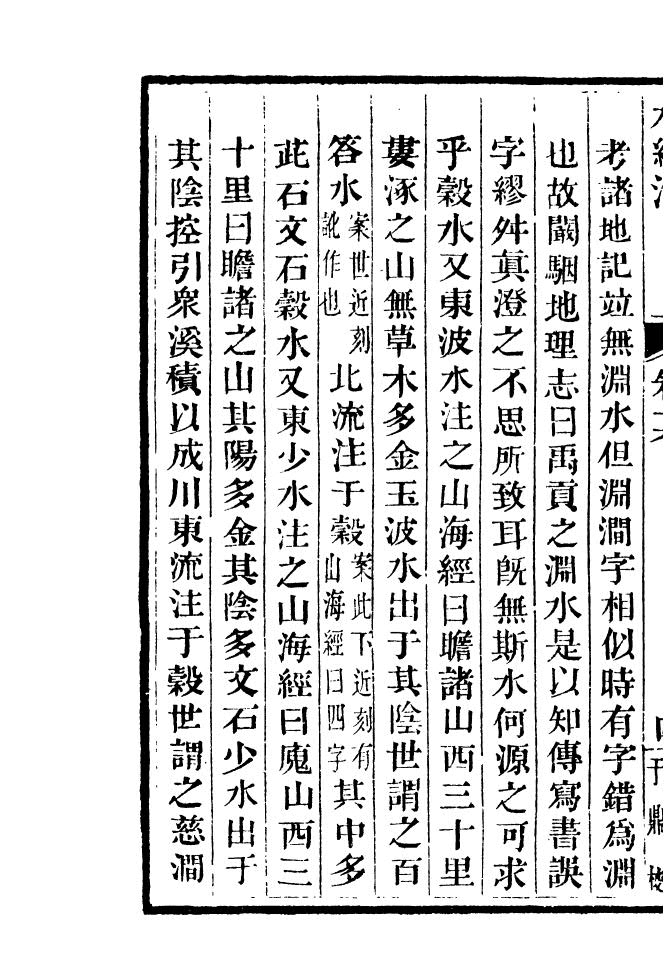 考諸地記竝無淵水但淵澗字相似時有字錯爲淵
也故闞駰地理志曰禹貢之淵水是以知傳寫書誤
字繆舛眞澄之不思所致耳旣無斯水何源之可求
乎穀水又東波水注之山海經曰瞻諸山西三十里
婁涿之山無草木多金玉波水出于其陰世謂之百
答水案世近刻訛作也北流注于穀案此下近刻有山海經曰四字其中多
茈石文石穀水又東少水注之山海經曰廆山西三
十里曰瞻諸之山其陽多金其陰多文石少水出于
其陰控引衆溪積以成川東流注于穀世謂之慈澗